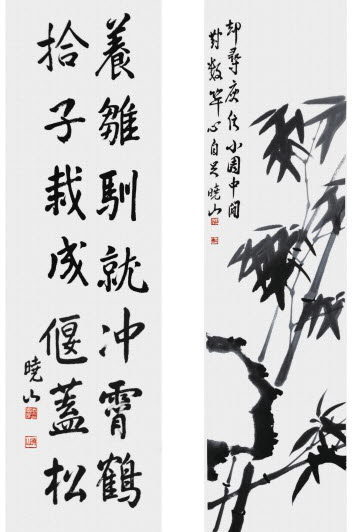 却尋庾信小園中閒
對數竿心自足曉山
養雛馴就冲霄鶴
拾子栽成偃蓋松
曉山